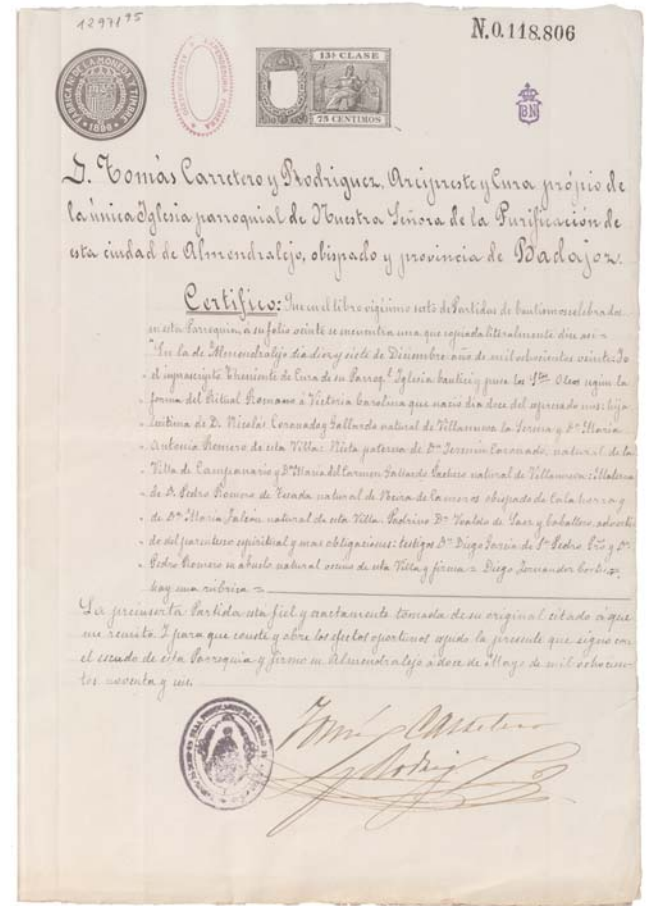 12971 95
N.0.118.806
FABRICA NL. DE LA MONEDA Y TIMBRE
1896
EXPENDEDURIA PRIMERA
13ª CLASE
75 CENTIMOS
BN
D. Tomás Carretero y Rodriguez, Arcipreste y Cura própio de
la única Iglesia parroquial de Nuestra Señora de la Purificación de
esta ciudad de Almendralejo, obispado y provincia de Badajoz.
Certifico: Que en el libro vigésimo sesto de Partidas de bautismos celebrados
en esta Parroquia, á su folio veinte se encuentra una que copiada literalmente dice así =
"En la de Almendralejo dia diez y siete de Diciembre año de mil ochocientos veinte: Yo
" el infrascripto Theniente de Cura de su Parroql. Iglesia bauticé y puse los Stos. Oleos segun la
" forma del Ritual Romano á Victoria Carolina que nació dia doce del espresado mes: hija
" lexitima de D. Nicolás Coronado y Gallardo natural de Villanueva la Serena y Dª Maria
" Antonia Romero de esta Villa: Nieta paterna de Dn Fermin Coronado, natural de la
" Villa de Campanario y Dª Maria del Carmen Gallardo Pachero natural de Villanueva: Materna
" de D. Pedro Romero de Tecada natural de Neira de Cameros obispado de Calahorra y
" de Dª Maria Falcón natural de esta Villa. Padrino Dn de Saez y Caballero, adverti-
" do del parentesco espiritual y mas obligaciones: testigos Dn Diego Garcia de Sn Pedro, y Dn
" Pedro Romero su abuelo natural vecino de esta Villa y firma = Diego Fernandez
hay una rúbrica =
La preinserta Partida esta fiel y exactamente tomada de su original citado á que
me remito. Y para que conste y obre los efectos oportunos espido la presente que signo con
el escudo de esta Parroquia y firmo en Almendralejo á doce de Mayo de mil ochocien-
tos noventa y seis.
Tomás Carretero
y Rodrig